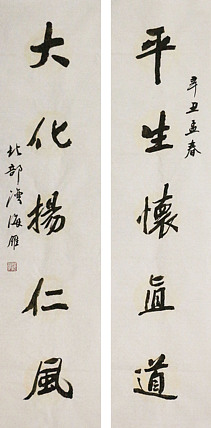 平生懷真道
辛丑孟春
大化揚仁風
北部
海雁